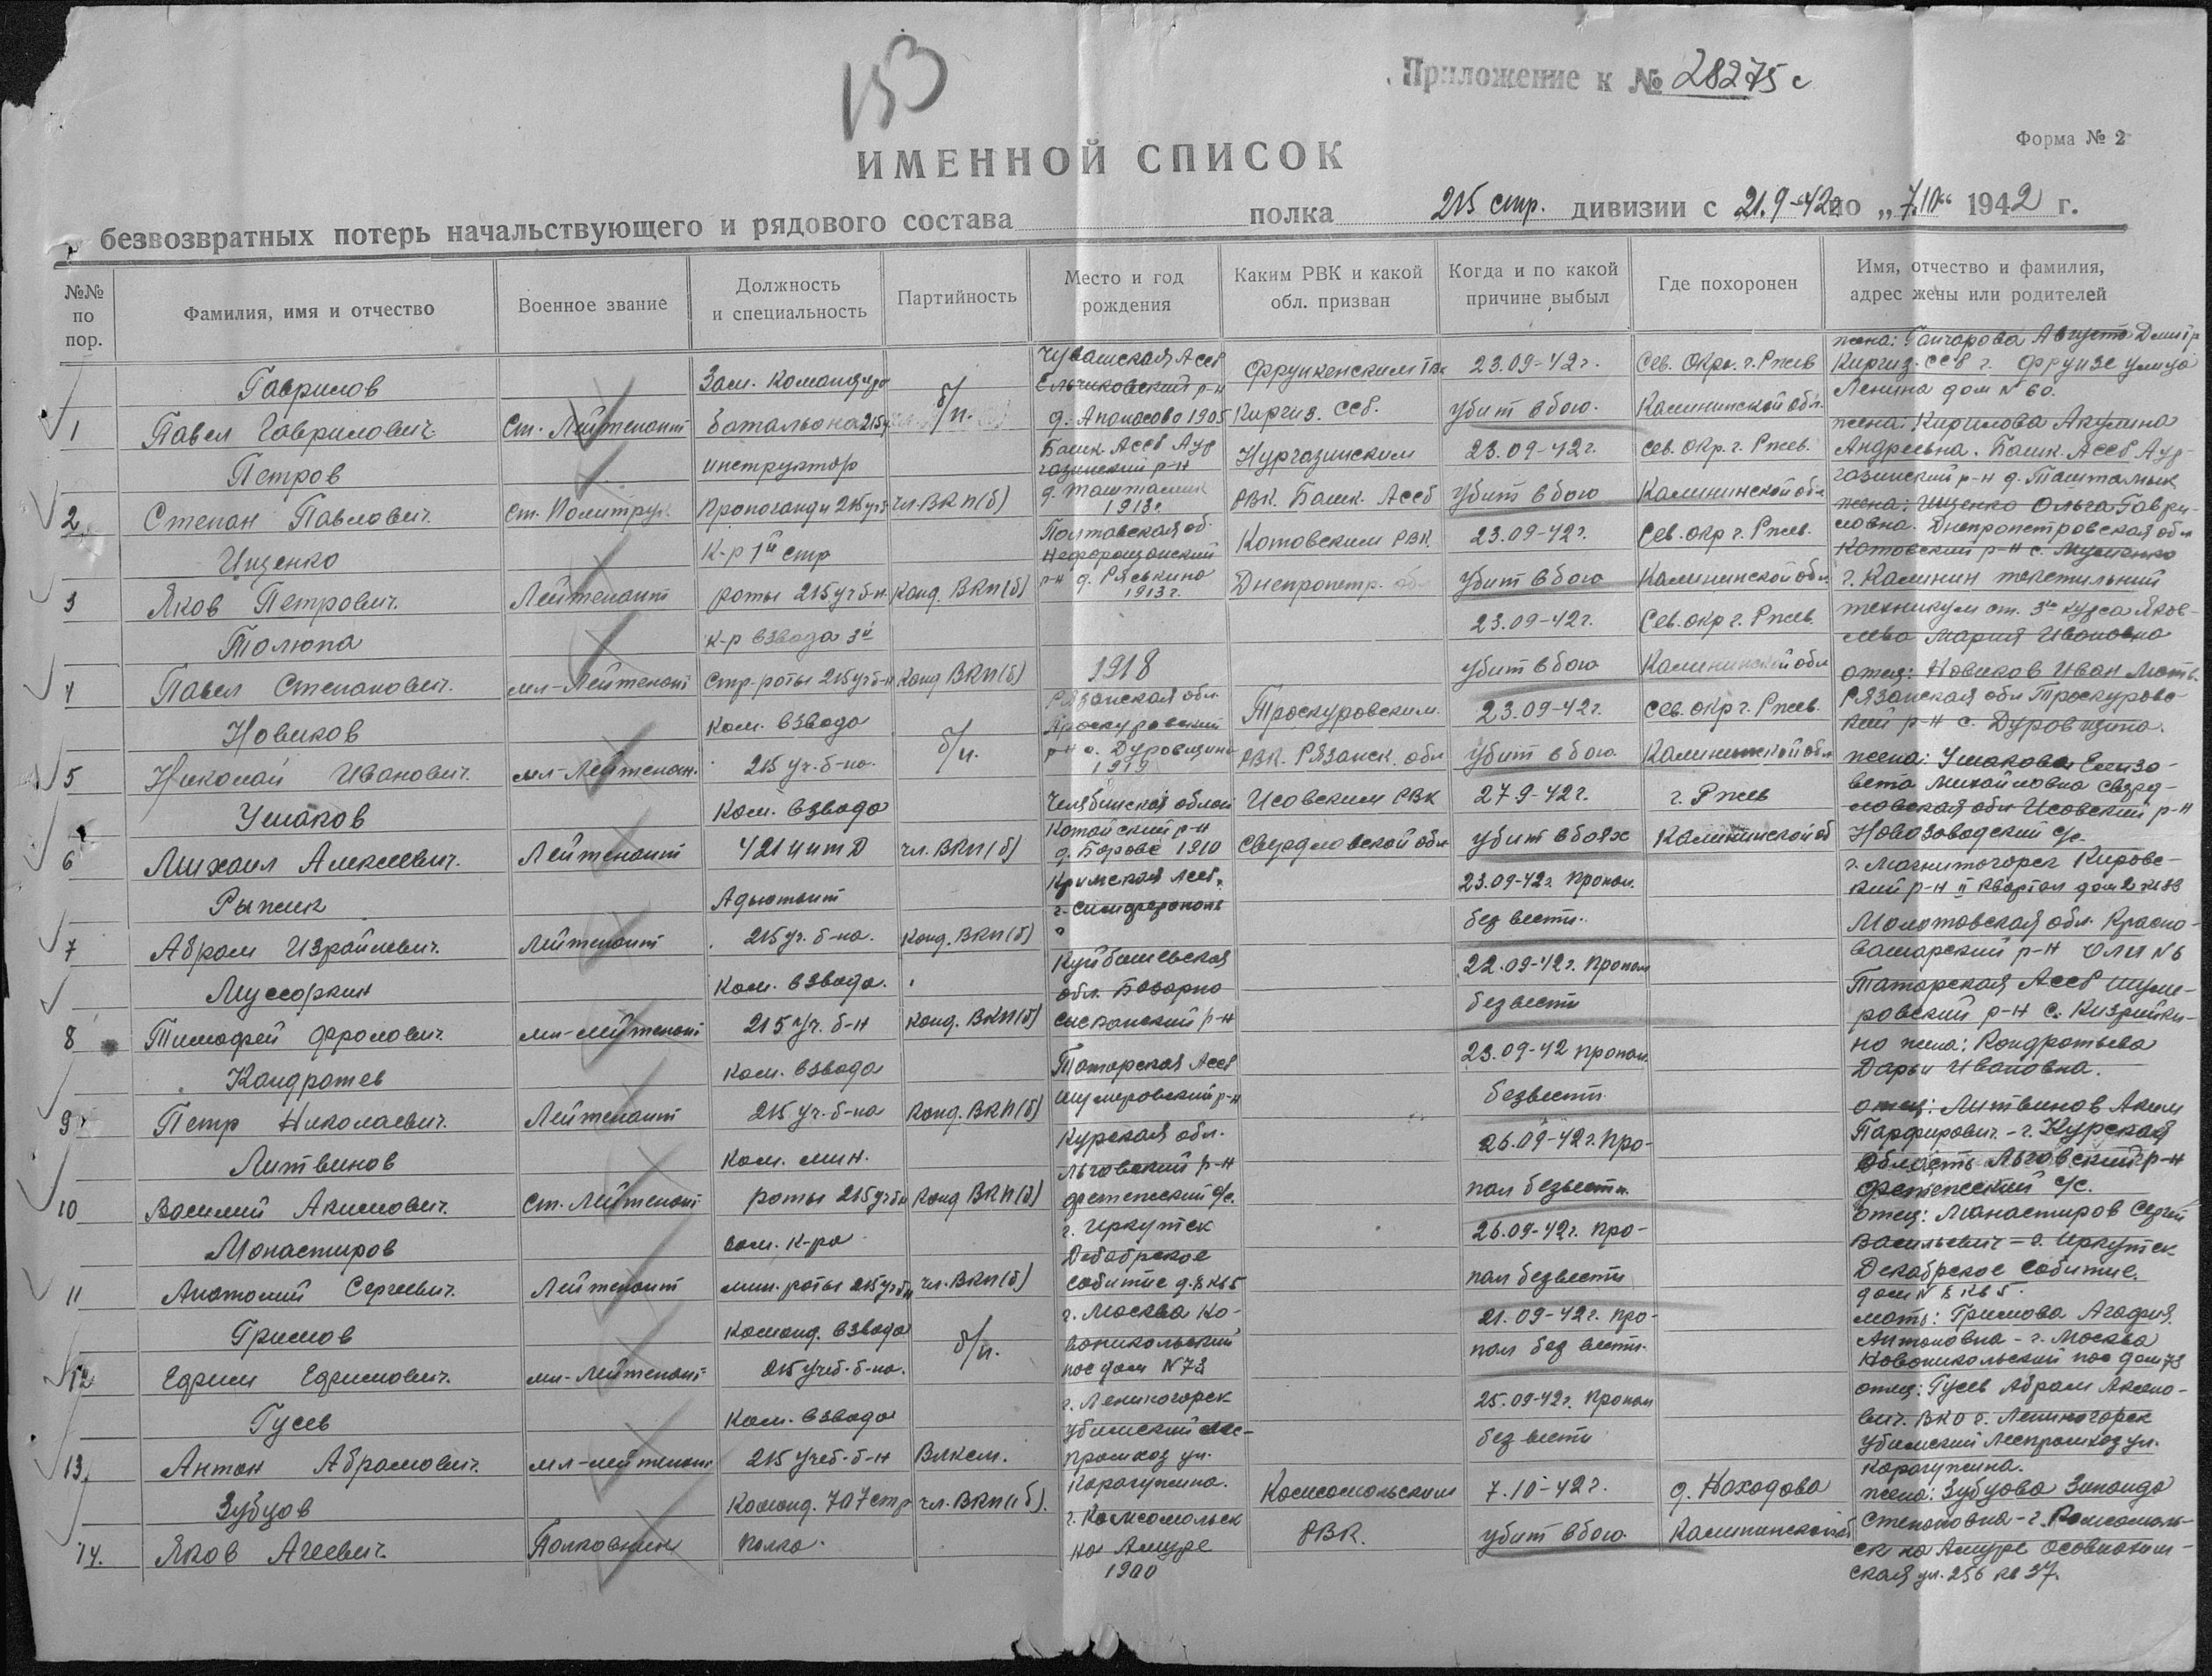 153
Приложение к № 28275с
Форма № 2
ИМЕННОЙ СПИСОК
безвозвратных потерь начальствующего и рядового состава полка 215 стр. дивизии с 21.9-42г по „7.10“ 1942 г.
№№ по пор. Фамилия, имя и отчество Военное звание Должность и специальность Партийность Место и год рождения Каким РВК и какой обл. призван Когда и по какой причине выбыл Где похоронен Имя, отчество и фамилия, адрес жены или родителей
1 Гаврилов Павел Гаврилович. Ст. Лейтенант Зам. Командира батальона 215 б/п. Чувашская Асср Ельчиковский р-н д. Апанасово 1905 Киргиз. ССР. 23.09-42г. убит в бою. Сев. Окр. г. Ржев Калининской обл. жена: Ганчарова Августа Дмитр Киргиз. ССР г. Фрунзе улица Ленина дом № 60.
2. Петров Степан Павлович. Ст. Политрук. инструктор пропоганды 215 уч чл. ВКП(б) Башк. Асср Аургазинский р-н д.Таштамык 1913г. Нургазинским РВК. Башк. Асср 23.09-42г. убит в бою Сев. окр. г. Ржев. Калининской обл жена: Кирилова Акулина Андреевна. Башк. Асср Аургазинский р-н д. Таштамык
3 Ищенко Яков Петрович. Лейтенант к-р 1й стр роты 215 уч б-н. Канд. ВКП(б) Полтавская об. Нефорощанский р-н д. Ряськино 1913г. Котовским РВК. Днепропетр. обл 23.09-42г. убит в бою Сев. окр г. Ржев. Калининской обл. жена: Ищенко Ольга Гавриловна. Днепропетровская обл Котовский р-н с.
4 Толюпа Павел Степанович. мл-Лейтенант к-р взвода 3й стр. роты 215 уч б-н Канд ВКП(б) 1918 23.09-42г. убит в бою Сев. окр г. Ржев. Калининской обл г. Калинин текстильный техникум ст. 3го курса Яковлева Мария Ивановна
5 Новиков Николай Иванович. мл-Лейтенан. Ком. взвода 215 уч. б-на. б/п. Рязанская обл. Троскуровский р-н с. Дуровщина 1919 Троскуровским РВК. Рязанск. обл 23.09-42г. убит в бою Сев. окр г. Ржев. Калининской обл отец: Новиков Иван Матв. Рязанская обл Троскуровский р-н с. Дуровщина.
6 Ушаков Михаил Алексеевич. Лейтенант Ком. взвода 421 чл. ВКП(б) Челябинская облас Катайский р-н д. Борове 1910 Исовским РВК Свердловской обл 27.9-42г. убит в боях г. Ржев Калининской об жена: Ушакова Елизавета Михайловна Свердловская обл Исовский р-н Новозаводский с/с.
7 Рыжик Абрам Израйлевич. Лейтенант Адьютант 215 уч. б-на. Канд. ВКП(б) Крымская Асср. г. Симферополь 23.09-42г. пропал без вести. г. Магнитогорск Кировский р-н II квартал дом 2
8 Муссоркин Тимофей Фролович. мл-лейтенант Ком. взвода. 215 уч. б-н Канд. ВКП(б) Куйбышевская обл. Базарно сысканский р-н 22.09-42г. пропал без вести Молотовская обл. Красновашарский р-н
9 Кондратев Петр Николаевич. Лейтенант Ком. взвода 215 уч. б-на Канд. ВКП(б) Татарская Асср шумеровский р-н 23.09-42 пропал. без вести Татарская Асср шумеровский р-н с. жена: Кондратьева Дарьи Ивановна.
10 Литвинов Василий Акимович. Ст. Лейтенант Ком. мин. роты 215 уч бн Канд ВКП(б) Курская обл. Льговский р-н фетежский с/с. 26.09-42г. Пропал без вести. отец: Литвинов Аким Парфирович. - г. Курская область Льговский р-н фетежский с/с.
11 Монастиров Анатолий Сергеевич. Лейтенант Зам. к-ра мин. роты 215 уч бн чл. ВКП(б) г. Иркутск Декабрское событие д. 8 кв 5 26.09-42г. Пропал без вести отец: Манастиров Сергей Васильевич - г. Иркутск Декабрское событие. дом № 8 кв 5.
12 Гримов Ефрим Ефримович. мл-Лейтенант Команд. взвода 215 учеб-б-на. б/п. г. Москва Ковоникольский пос дом № 73 21.09-42г. Пропал без вести. мать: Гримова Агафия. Антоновна - г. Москва Новоникольский пос дом 73
13. Гусев Антон Абрамович. мл-лейтенант Ком. взвода 215 учеб-б-н Влксм. г. Лениногорск убинский леспромхоз ул. Карагужина. 25.09-42г. Пропал без вести отец: Гусев Абрам вич. ВКО г. Лениногорск убинский Леспромхоз ул. Карагужина.
14. Зубцов Яков Агеевич. Полковник Команд. 707 стр полка. чл. ВКП(б). г. Комсомольск на Амуре 1900 Комсомольским РВК. 7.10-42г. убит в бою д. Находова Калининской об жена: Зубцова Зинаида Степановна - г. Комсомольск на Амуре Осовиахимская ул. 256 кв 37.